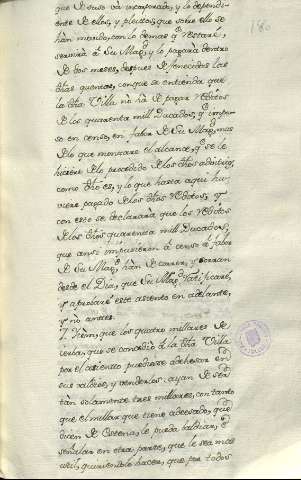 180
que de suso va incorporado, y lo dependi-
ente de ellos, y pleitos, que sobre ello se
han movido, con lo demas q.e restare,
servirá á Su Mag.d, y lo pagará dentro
de dos meses, despues de fenecidas las
dhas quentas, con que se entienda que
la dha Villa no há de pagar réditos
de los quarenta mill Ducados, q.e impu-
so en censo, en favor de Su Mag.d, mas
de lo que montare el alcance, q.e se le
hiciere de lo procedido de los dhos advitrios,
como dho es, y lo que hasta aqui hu-
viere pagado de los dhos réditos, y
con esto se declara que los réditos
de los dhos quarenta mill Ducados,
que ansi impusieron á censo á favor
de Su Mag.d han de correr, y corran
desde el Dia, que Su Mag.d ratificare,
y aprovare este asiento en adelante,
y no antes.
7. Item, que los quatro millares de
que se concedió á la dha Villa
por el asiento pudiese adehesar en
sus valdios, y venderlos, ayan de ser
tan solamente tres millares, con tanto
que el millar que tiene adehesado, que
dicen de la pueda baldiar, y
señalar en otra parte, que le sea mas
util, queriendolo hacer, que por todos